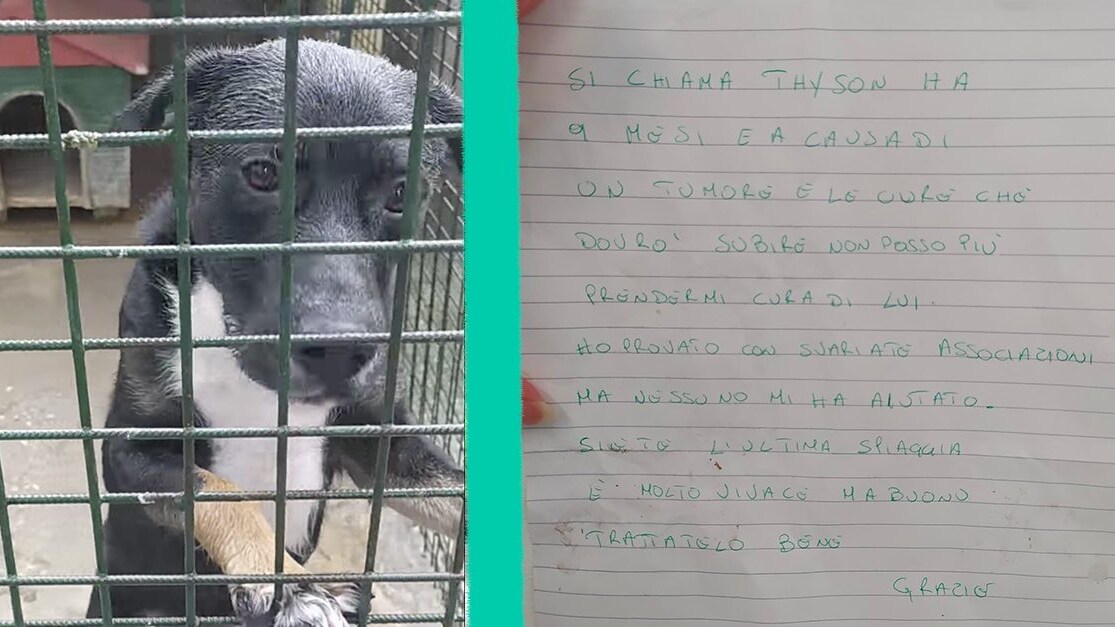 SI CHIAMA THYSON HA
9 MESI E A CAUSA DI
UN TUMORE E LE CURE CHE
DOVRO' SUBIRE NON POSSO PIÙ
PRENDERMI CURA DI LUI.
HO PROVATO CON SVARIATE ASSOCIAZIONI
MA NESSUNO MI HA AIUTATO.
SIETE L'ULTIMA SPIAGGIA
È MOLTO VIVACE MA BUONO
TRATTATELO BENE
GRAZIE